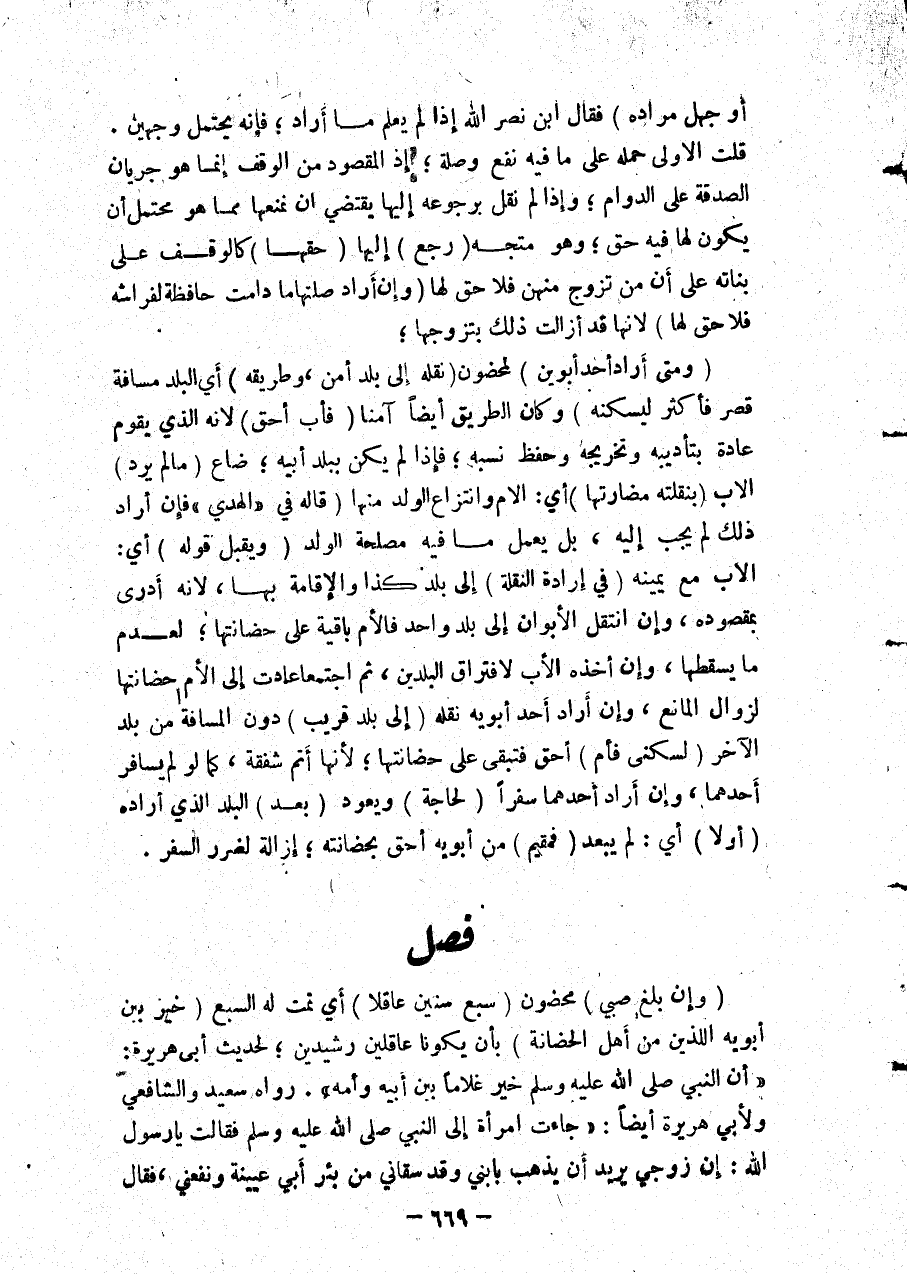 أو جهل مراده ) فقال ابن نصر الله إذا لم يعلم مـا أراد ؛ فإنه يحتمل وجهين .
قلت الاولى حمله على ما فيه نفع وصلة ؛ إذ المقصود من الوقف إنما هو جريان
الصدقة على الدوام ؛ وإذا لم نقل برجوعه إليها يقتضي ان نمنعها مما هو محتمل أن
يكون لها فيه حق ؛ وهو متجـه ( رجع ) إليها ( حقهـا ) كالوقـف عـلى
بناته على أن من تزوج منهن فلا حق لها ( وإن أراد صلتها ما دامت حافظة لفراشه
فلا حق لها ) لانها قد أزالت ذلك بتزوجها ؛
( ومتى أراد أحد أبوين ) لمحضون ( نقله إلى بلد أمن ، وطريقه ) أي البلد مسافة
قصر فأكثر ليسكنه ) وكان الطريق أيضاً آمنا ( فأب أحق ) لانه الذي يقوم
عادة بتأديبه وتخريجه وحفظ نسبه ؛ فإذا لم يكن ببلد أبيه ؛ ضاع ( مالم يرد )
الاب ( بنقلته مضارتها ) أي : الام وانتزاع الولد منها ( قاله في « الهدي » فإن أراد
ذلك لم يجب إليه ، بل يعمل مـا فيه مصلحة الولد ( ويقبل قوله ) أي :
الاب مع يمينه ( في إرادة النقلة ) إلى بلد كذا والإقامة بهـا ، لانه أدرى
بمقصوده ، وإن انتقل الأبوان إلى بلد واحد فالأم باقية على حضانتها ؛ لعـدم
ما يسقطها ، وإن أخذه الأب لافتراق البلدين ، ثم اجتمعا عادت إلى الأم حضانتها
لزوال المانع ، وإن أراد أحد أبويه نقله ( إلى بلد قريب ) دون المسافة من بلد
الآخر ( لسكنى فأم ) أحق فتبقى على حضانتها ؛ لأنها أتم شفقة ، كما لو لم يسافر
أحدهما ، وإن أراد أحدهما سفراً ( لحاجة ) ويعود ( بعـد ) البلد الذي أراده
( أولا ) أي : لم يبعد ( فمقيم ) من أبويه أحق بحضانته ؛ إزالة لضرر السفر .
فصل
( وإن بلغ صبي ) محضون ( سبع سنين عاقلا ) أي تمت له السبع ( خير بين
أبويه اللذين من أهل الحضانة ) بأن يكونا عاقلين رشيدين ؛ لحديث أبي هريرة :
« أن النبي صلى الله عليه وسلم خير غلاماً بين أبيه وأمه » . رواه سعيد والشافعي
ولأبي هريرة أيضاً : « جاءت امرأة إلى النبي صلى الله عليه وسلم فقالت يا رسول
الله : إن زوجي يريد أن يذهب بابني وقد سقاني من بئر أبي عيينة ونفعني ، فقال
– ٦٦٩ –